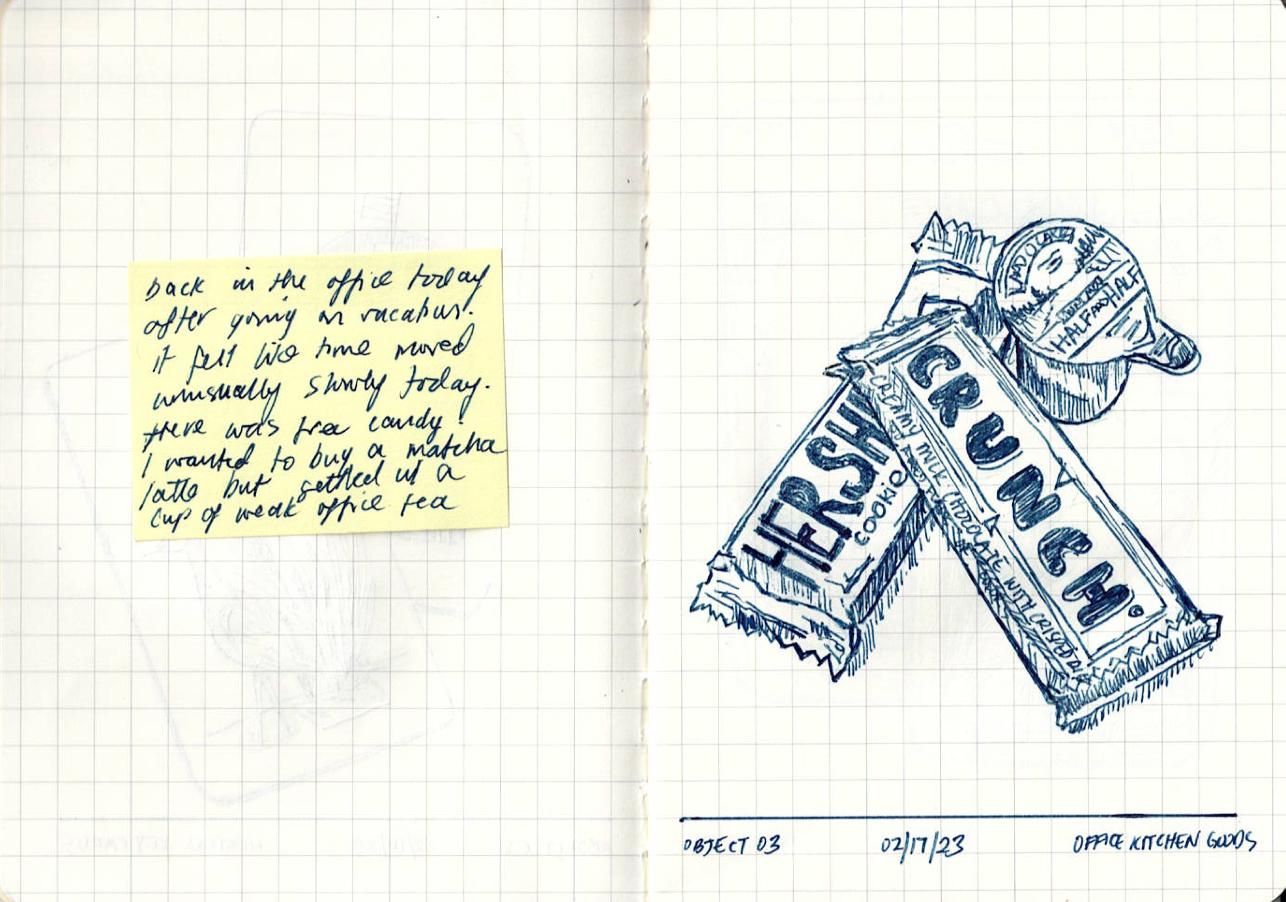 back in the office today
after going on vacation.
it felt like time moved
unusually slowly today.
there was free candy!
I wanted to buy a matcha
latte but settled w/ a
cup of weak office tea
LAND O LAKES
MINI
HALF AND HALF
CRUNCH
CREAMY MILK CHOCOLATE WITH CRISPED
HERSH
COOKIE
OBJECT 03 02/17/23 OFFICE KITCHEN GOODS